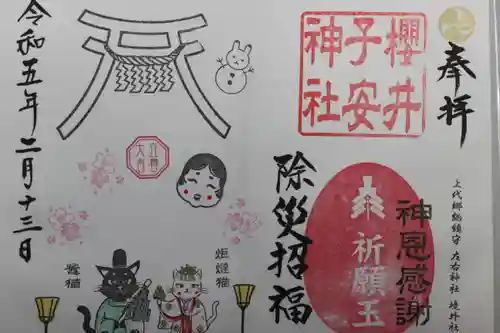 奉拝
上代郷総鎮守 左右神社 境外社
櫻井
子安
神社
神恩感謝
祈願玉
除災招福
令和五年二月十三日
炬燵猫